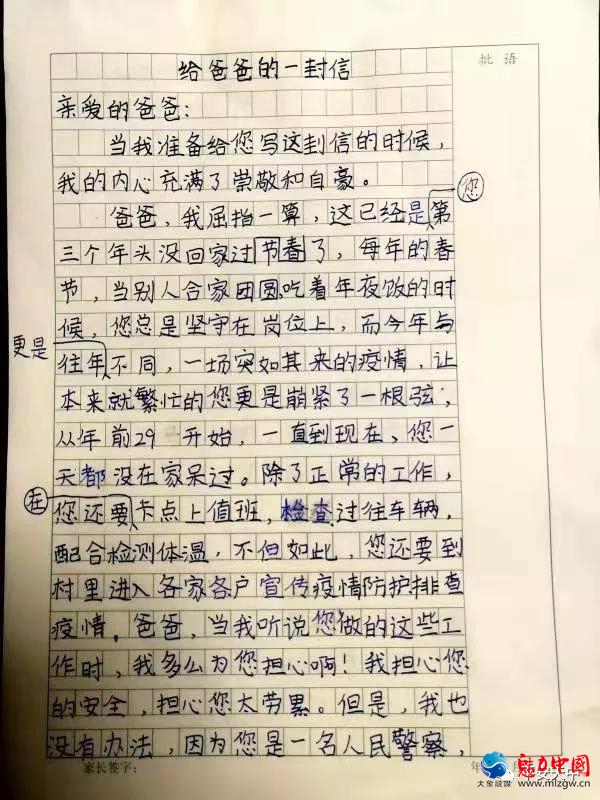 给爸爸的一封信
批语
亲爱的爸爸：
当我准备给您写这封信的时候，
我的内心充满了崇敬和自豪。
您
爸爸，我屈指一算，这已经是第
三个年头没回家过节春了，每年的春
节，当别人合家团圆吃着年夜饭的时
候，您总是坚守在岗位上，而今年与
更是
往年不同，一场突如其来的疫情，让
本来就繁忙的您更是崩紧了一根弦；
从年前29开始，一直到现在、您一
天都没在家呆过。除了正常的工作，
在
您还要卡点上值班，检查过往车辆，
配合检测体温，不但如此，您还要到
村里进入各家各户宣传疫情防护排查
疫情。爸爸，当我听说您做的这些工
作时，我多么为您担心啊！我担心您
的安全，担心您太劳累。但是，我也
没有办法，因为您是一名人民警察，
家长签字：
年
月
魅力中国
大象融媒 www.mlzgw.com